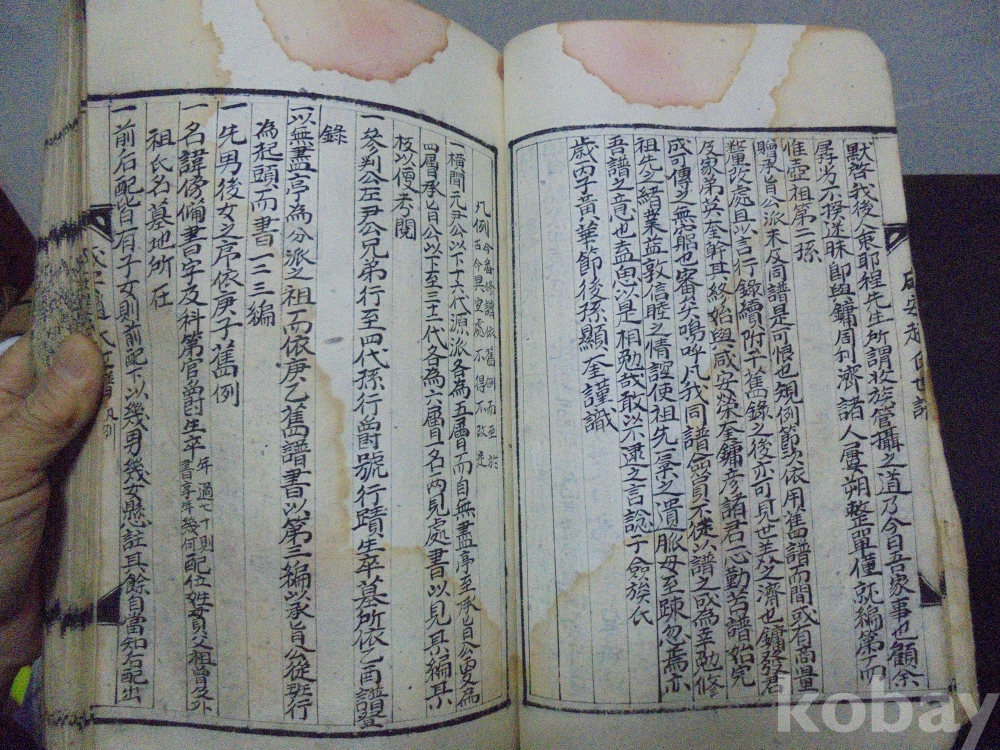 默啓我後人東耶程先生所謂收族管攝之道乃今日吾家事也顧余
孱劣不揆迷昧卽與鏞周利濟諸人屢朔整單僅就編第而
惟壺祖第二孫
承旨公派未及同譜是可恨也規例節次依用舊譜而間或有商量
釐改處且以言行錄續附于舊錄之後亦可見世美之濟也
及家弟英奎幹其終始與咸安榮奎鏞彦諸君心勤苦譜始完
成可傳之無窮也審矣嗚呼凡我同譜僉員不徒以譜之成爲幸勉修
祖先之緖業益敦信睦之情誼使祖先一氣之遺脈毋至疎忽焉亦
吾譜之意也盍思以是相勉哉敢以不遠之言諗于僉族氏
歲丙子黃華節後孫顯奎謹識
凡例 今番修譜依舊例而至於古今異宜處不得不改是
一橫間元尹公以下十六代源派各爲五層而自無盡亭至承旨公更爲
四層承旨公以下至三十二代各爲六層名內見處書以見其編某
板以便考閱
一參判公左尹公兄弟行至四代孫行爵號行蹟生卒墓所依乙酉譜登
錄
一以無盡亭爲分派之祖而依庚乙舊譜書以第三編以承旨公從兄行
爲起頭而書一二三編
一先男後女之序依庚子舊例
一名諱傍備書字及科第官爵生卒年過七十則書享年幾何配位姓貫父祖曾及外
祖氏名墓地所在
一前后配皆有子女則前配下以幾男幾女懸註其餘自當知后配出